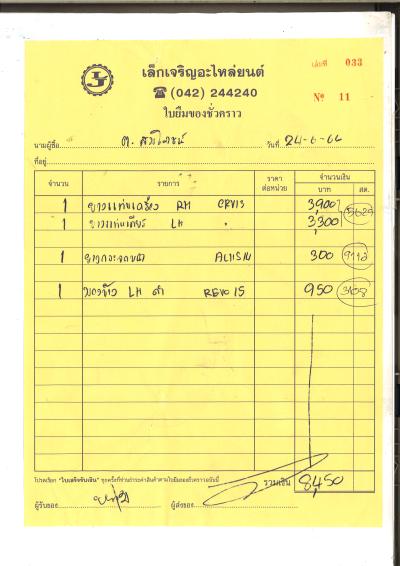 เล่มที่ 033
เล็กเจริญอะไหล่ยนต์
☎ (042) 244240
№ 11
ใบยืมของชั่วคราว
นามผู้ซื้อ วันที่ 24-6-66
ที่อยู่
จำนวน รายการ ราคาต่อหน่วย จำนวนเงิน บาท สต.
1 ยางแท่นเครื่อง RH CRV13 3,900 5629
1 ยางแท่นเกียร์ LH " 3,300
1 300
1 มองข้าง LH ดำ REVO 15 950 3108
โปรดเรียก "ใบเสร็จรับเงิน" ทุกครั้งที่ท่านชำระค่าสินค้าตามใบยืมของชั่วคราวฉบับนี้ รวมเงิน 8,450
ผู้รับของ ผู้ส่งของ